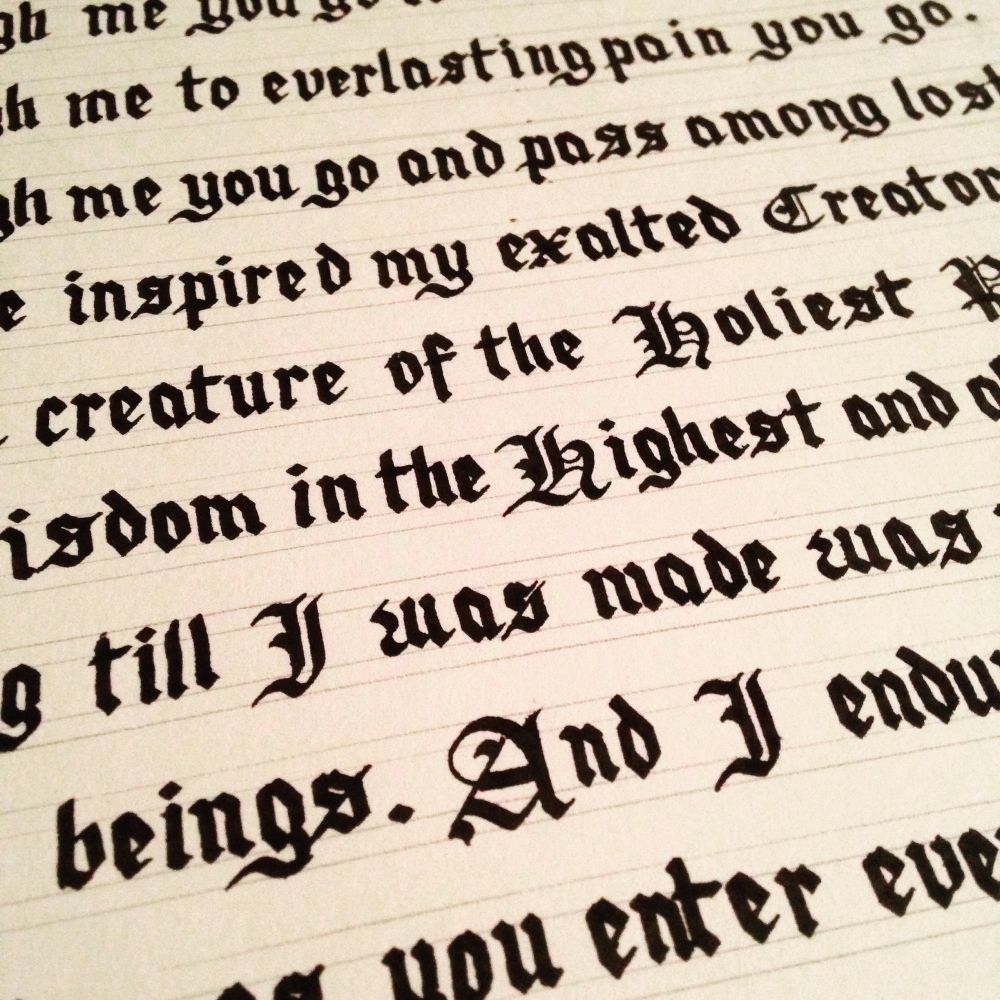 me you go
me to everlasting pain you go.
me you go and pass among lost
inspired my exalted Creator
creature of the Holiest
in the Highest and
till I was made was
beings. And I
you enter